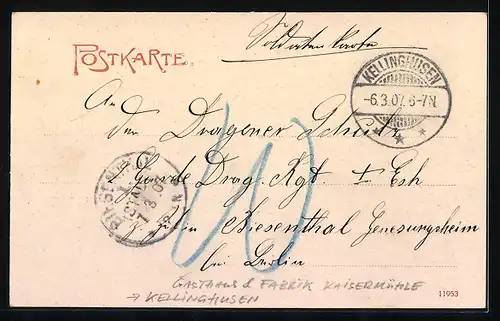 POSTKARTE.
Soldaten Karte
KELLINGHUSEN
-6.3.07. 6-7N.
An
den Dragoner Schütz
2. Garde Drag. Rgt. 1 Esk
in Biesenthal Genesungsheim
bei Berlin
BIESENTHAL
7 3 07
10
GASTHAUS & FABRIK KAISERMÜHLE
→ KELLINGHUSEN
11953